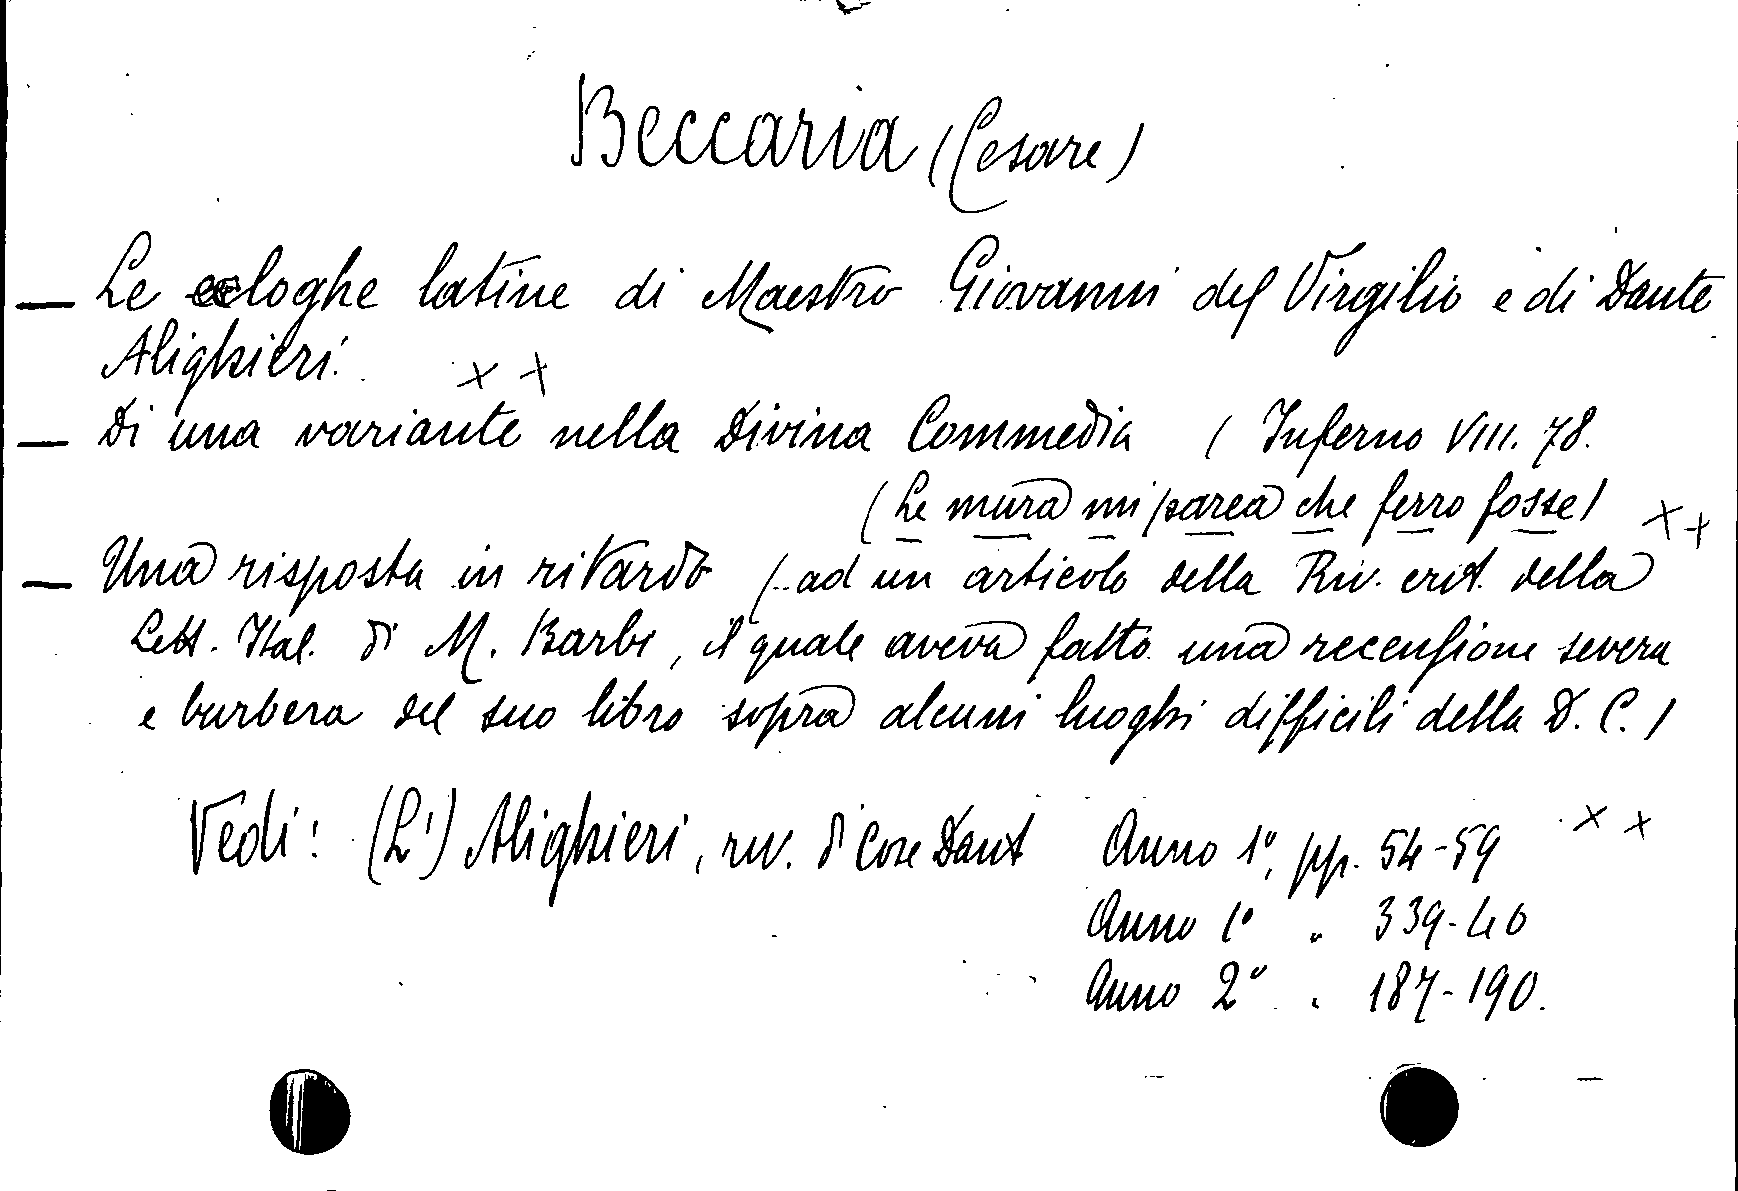 Beccaria (Cesare)
— Le ecloghe latine di Maestro Giovanni del Virgilio e di Dante
Alighieri. x x
— Di una variante nella Divina Commedia ( Inferno VIII. 78.
(Le mura mi parea che ferro fosse) x x
— Una risposta in ritardo (ad un articolo della Riv. crit. della
Lett. Ital. di M. Barbi, il quale aveva fatto una recensione severa
e burbera del suo libro sopra alcuni luoghi difficili della D. C.)
Vedi: (L') Alighieri, riv. di Cose Dant Anno 1º, pp. 54-59 x x
Anno 1º " 339-40
Anno 2º " 187-190.